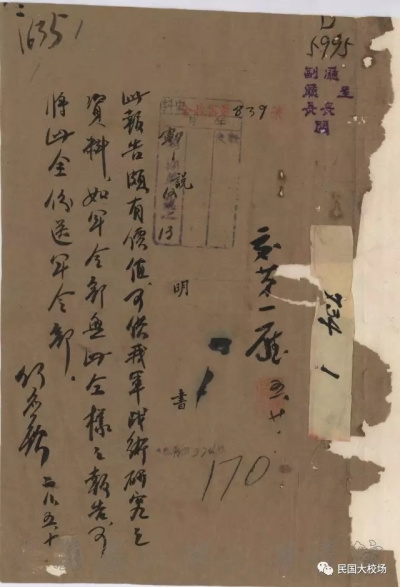 5995
副廳長閱
839
交第一廳 五、廿
734 1
說明書
170
1635
此報告頗有價值可供我軍战術研究之
資料.如軍令部無此仝樣之報告可
將此全份送軍令部.
二八、五、十
民国大校场